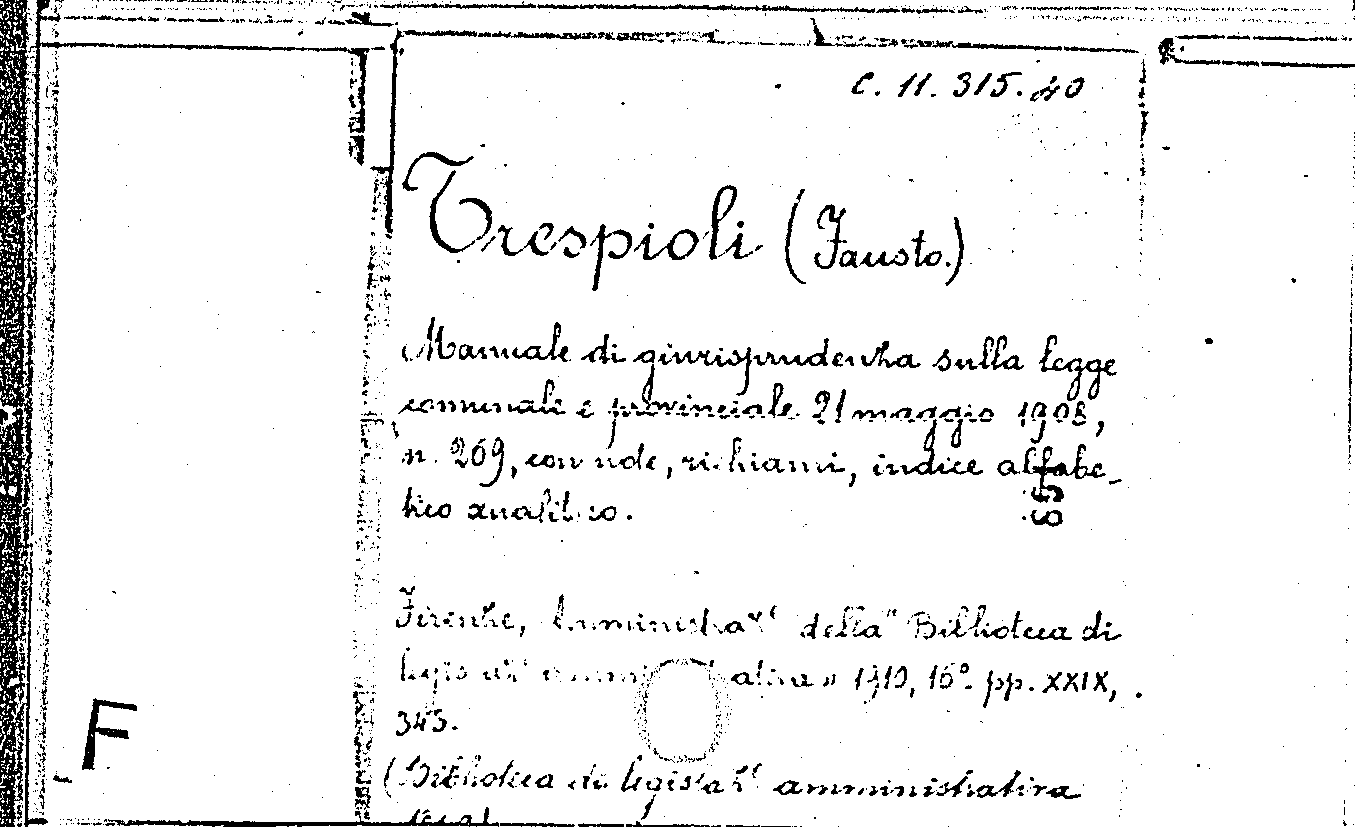 C. 11. 315. 40
Trespioli (Fausto.)
Manuale di giurisprudenza sulla legge
comunale e provinciale 21 maggio 1908,
n. 269, con note, richiami, indice alfabe-
tico analitico.
Firenze, Amministraz.e della "Biblioteca di
legislaz.e amministrativa" 1910, 16°. pp. XXIX,
343.
(Biblioteca di legislaz.e amministrativa
F